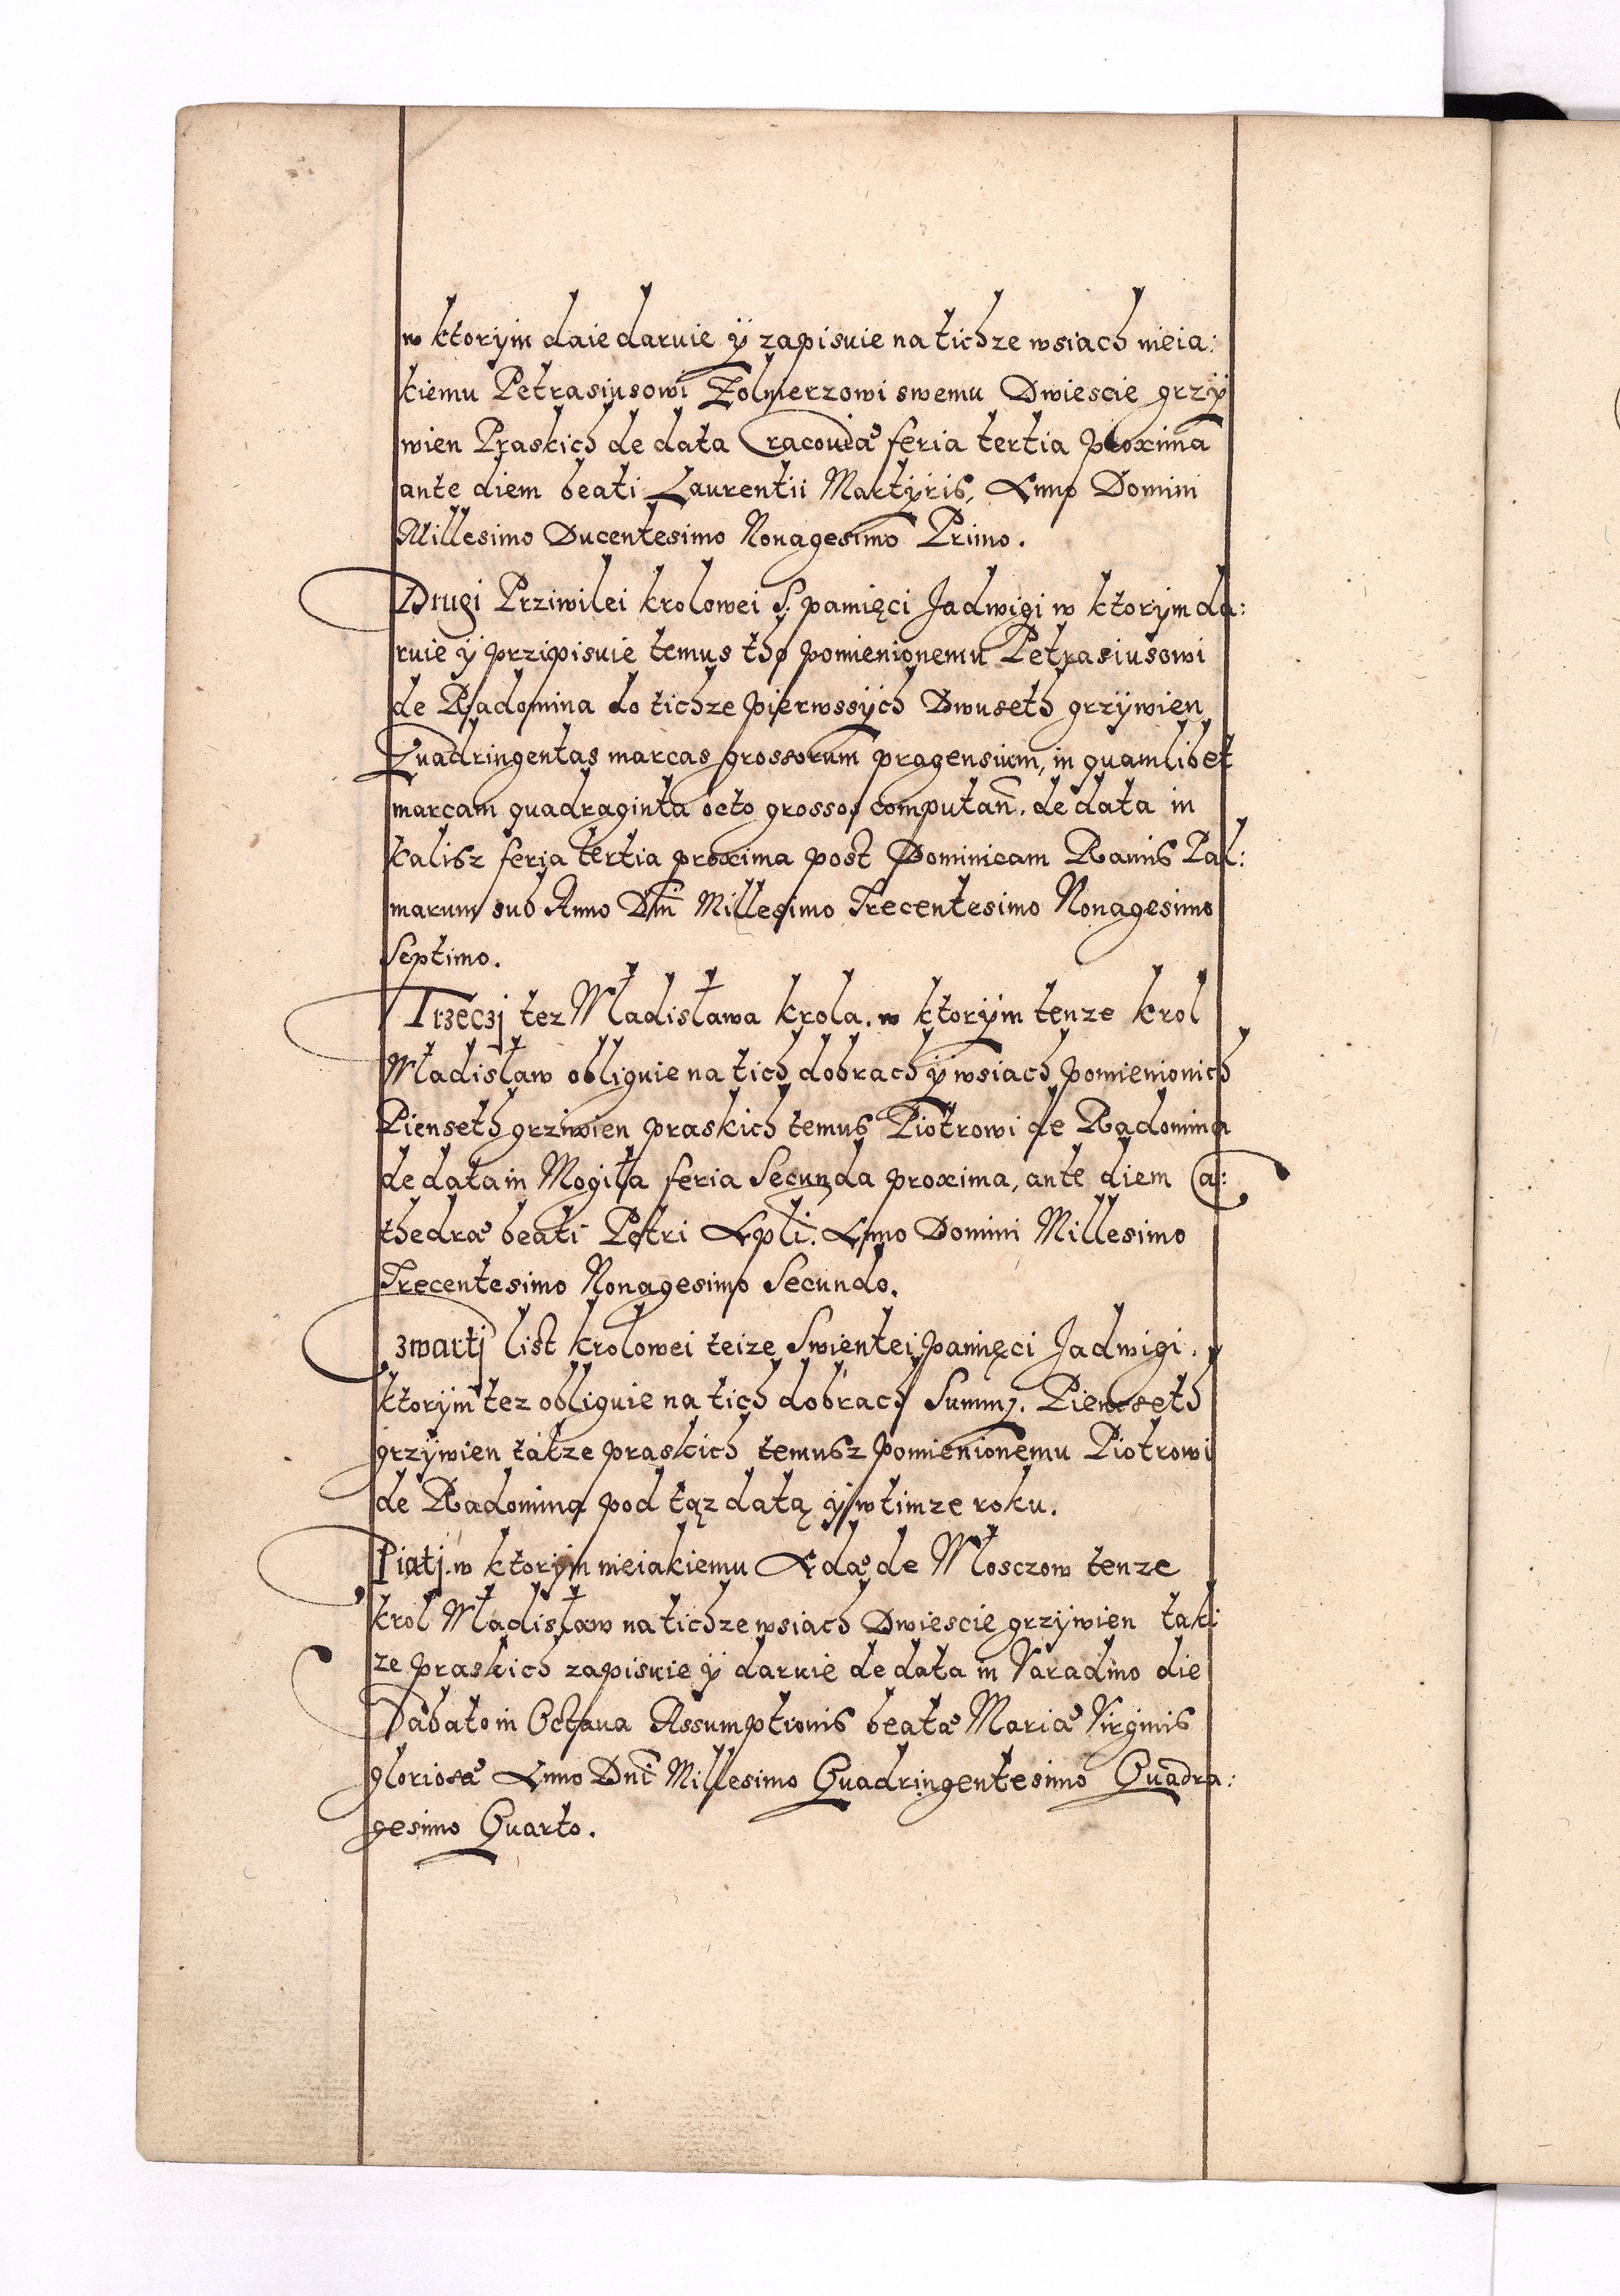 w ktorÿm daie daruie ÿ zapisuie na tichze wsiach nieia:
kiemu Petrasiusowi Zolnierzowi swemu Dwiescie grzÿ
wien Praskich de data Cracouiæ feria tertia proxima
ante diem beati Laurentii Martÿris, Anno Domini
Millesimo Ducentesimo Nonagesimo Primo.
Drugi Prziwilei krolowei S. pamięci Jadwigi w ktorÿm da:
ruie ÿ przipisuie temus tho pomienionemu Petrasiusowi
de Radomina do tichze pierwssÿch Dwuseth grzÿwien
Quadringentas marcas grossorum pragensium, in quamlibet
marcam quadraginta octo grossos computan. de data in
kalisz feria tertia proxima post Dominicam Ramis Pal:
marum sub Anno Dni Millesimo Trecentesimo Nonagesimo
Septimo.
Trzeczj tez Wladisława krola. w ktorÿm tenze krol
Wladisław obliguie na tich dobrach ÿ wsiach pomienionich
Pienseth grziwien praskich temus Piotrowi de Radomina
de data in Mogiła feria Secunda proxima, ante diem Ca:
thedræ beati Petri Apli. Anno Domini Millesimo
Trecentesimo Nonagesimo Secundo.
Czwartj list krolowei teize Swientei pamięci Jadwigi. w
ktorÿm tez obliguie na tich dobrach Summę. Pienseth
grzÿwien takze praskich temusz pomienionemu Piotrowi
de Radomina pod tąz datą ÿ w timze roku.
Piatj. w ktorÿm nieiakiemu Adæ de Mosczow tenze
krol Wladisław na tichze wsiach Dwiescie grzÿwien taki
ze praskich zapisuie ÿ daruie de data in Varadino die
Sabato in Octaua Assumptionis beatæ Mariæ Virginis
gloriosæ Anno Dni Millesimo Quadringentesimo Quadra:
gesimo Quarto.